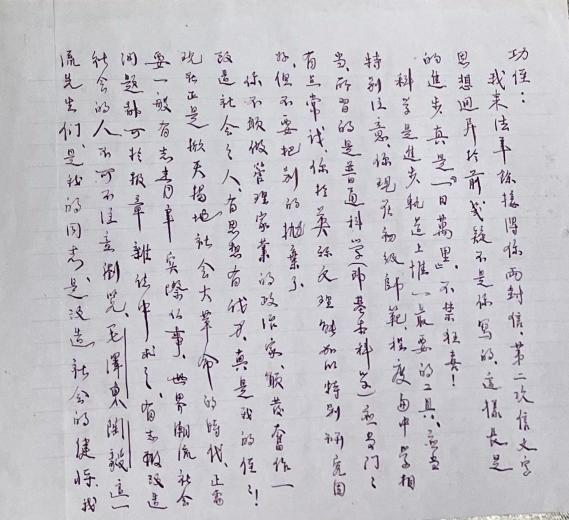 功侄：
我来法年馀接得你两封信。第二次信文字
思想迥异於前，我疑不是你写的。这样长足
的進步真是“一日萬里”，不禁狂喜！
科学是進步轨道上推一最要的工具，应当
特别注意，你现在初级師範，程度与中学相
当，所习的是普通科学（即基本科学）应专门之
有点常识，你於英法文理解如特别研究固
好，但不要把别的抛棄了。
你不顾做管理家業的政治家，顾发奮作一
改造社会之人，有思想有能力，真是我的侄儿！
现在正是掀天揭地社会大革命的時代，正需
要一般有志青年实際从事。世界潮流社会
问题都可於报章雜誌中求之，有志做改造
社会的人不可不注意瀏览。毛澤東陶毅这一
流先生们，是我的同志，是改造社会的健将。我